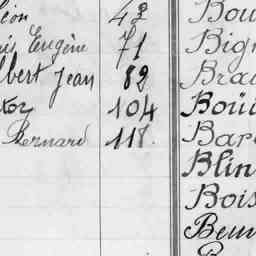 éon 43 Bou
is Eugène 71 Bign
lbert Jean 82 Brac
tor 104 Boü
Bernard 118. Bar
Blin
Bois
Beur